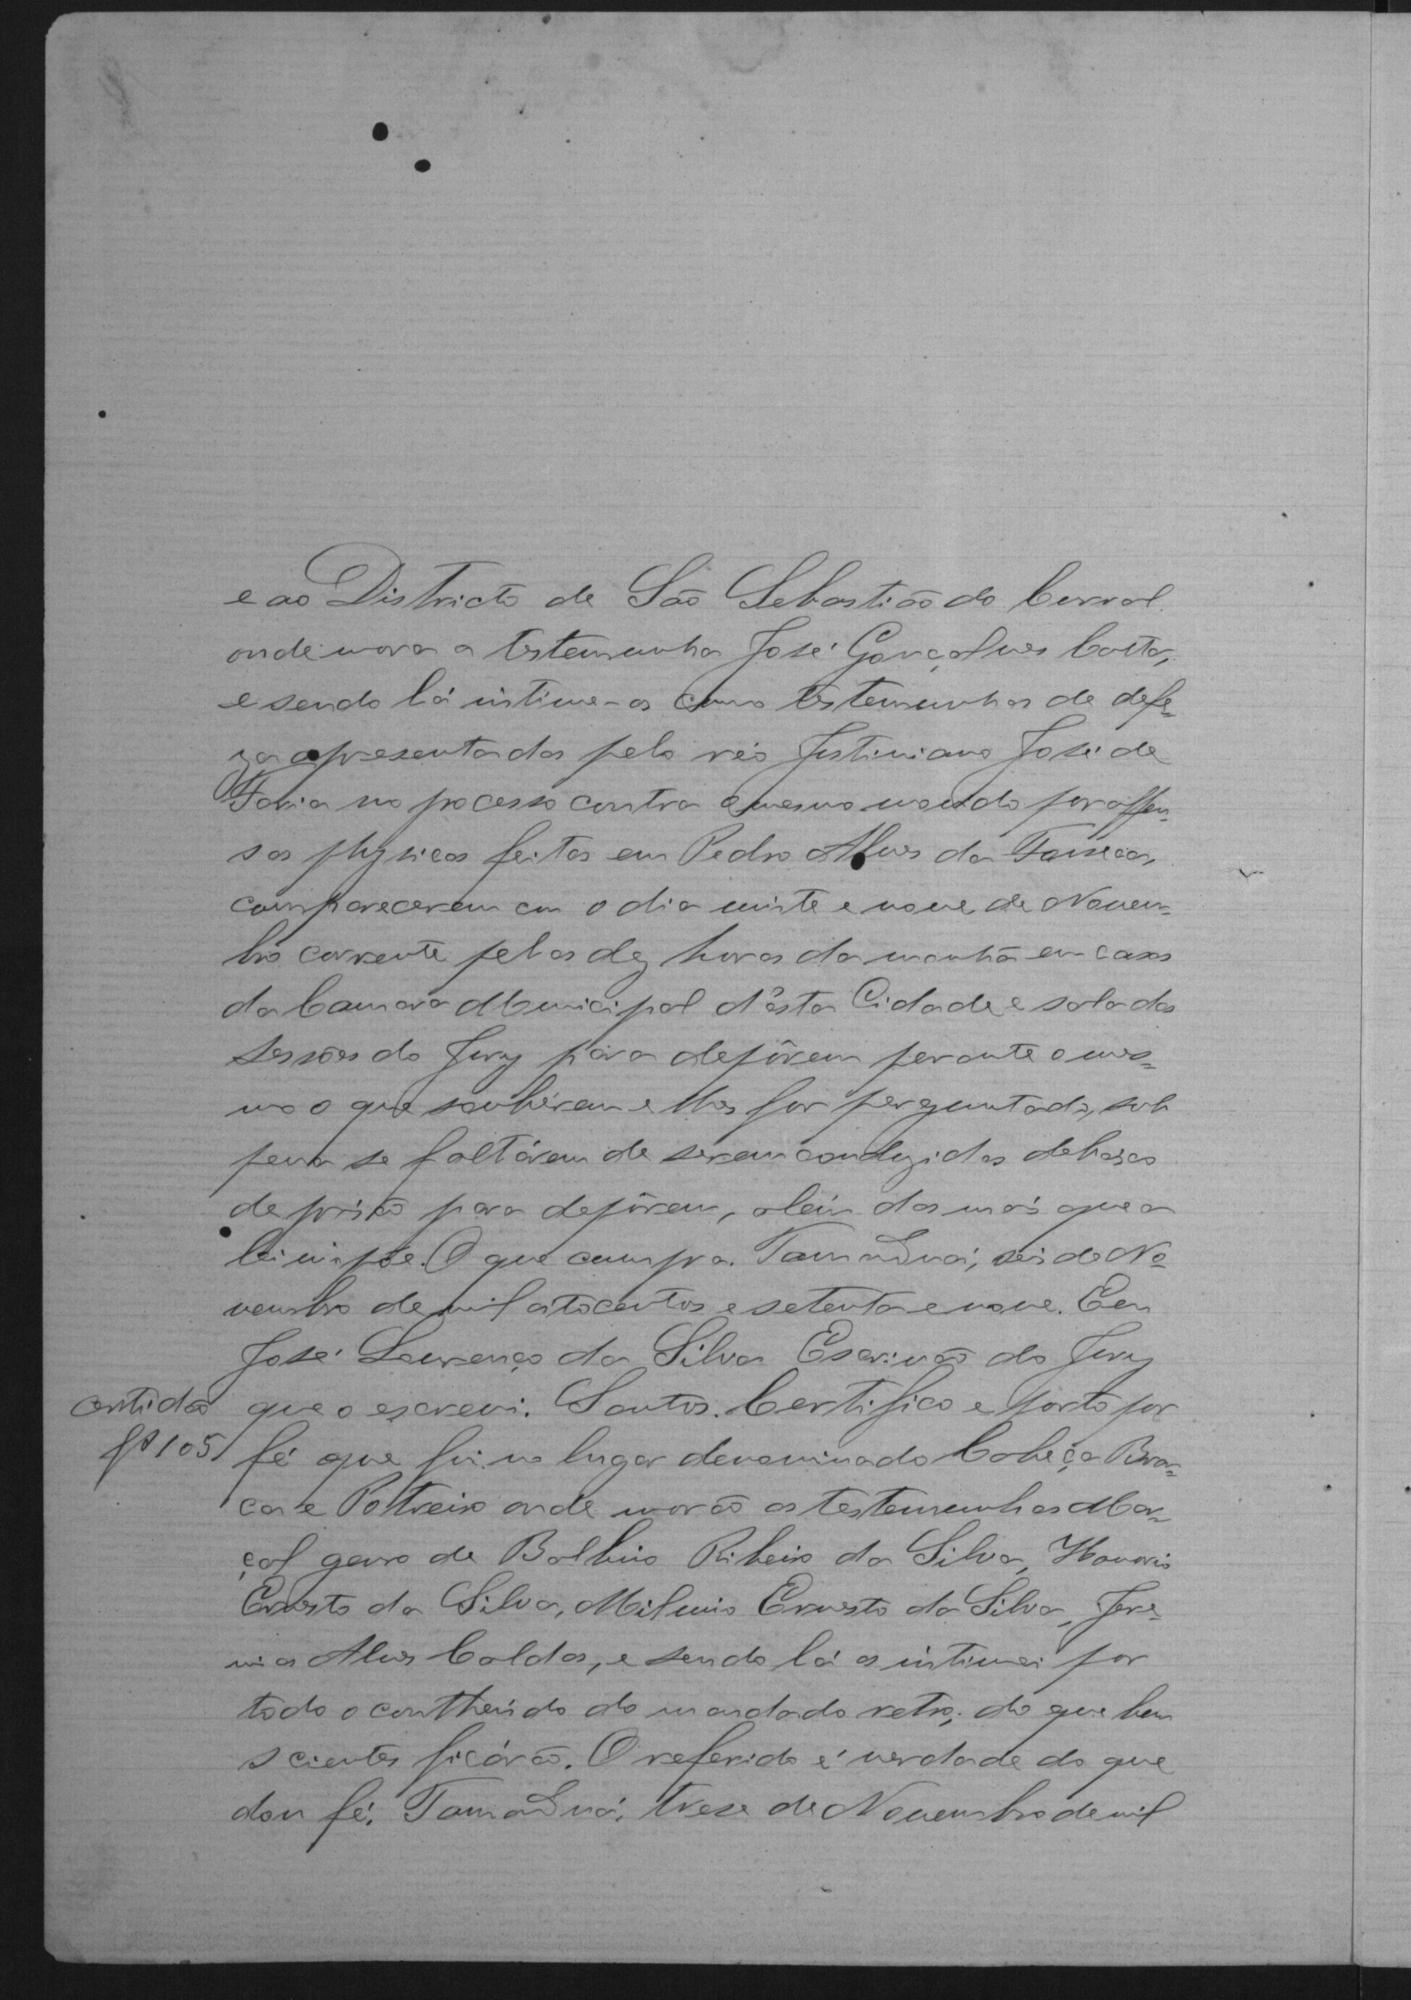 e ao Districto de São Sebastião do Curral
onde mora a testemunha José Gonçalves Cotta,
e sendo lá intime-os como testemunhas de defe-
za apresentadas pelo réo Justiniano José de
Faria no processo contra o mesmo movido por offen-
sas physicas feitas em Pedro Alves da Fonseca,
comparecerem em o dia vinte e nove de Novem-
bro corrente pelas dez horas da manhã em casas
da Camara Municipal d'ésta Cidade e sala das
sessões do Jury para depôrem perante o mes-
mo o que soubérem e lhes for perguntado, sob
pena se faltárem de serem conduzidas debaixo
de prisão para depôrem, além das mais que a
lei impõe. O que cumpra. Tamanduá, seis de No-
vembro de mil oitocentos e setenta e nove. Eu
José Lourenço da Silva Escrivão do Jury
que o escrevi. Santos. Certifico e porto por
certidão
fs 105
fé que fui no lugar denominado Cabeça Bran-
ca e Poltreiro onde morão as testemunhas Mar-
çal genro de Balbino Ribeiro da Silva, Honorio
Ernesto da Silva, Misseno Ernesto da Silva, Jere-
mias Alves Caldas, e sendo lá os intimei por
todo o contheúdo do mandado retro; do que bem
scientes ficárão. O referido é verdade do que
dou fé. Tamanduá, trese de Novembro de mil